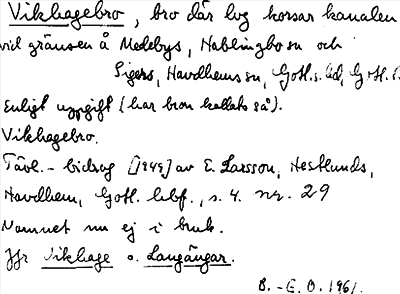 Vikhagebro, bro där lvg korsar kanalen
vid gränsen å Medebys, Hablingbo sn och
Sigers, Havdhems sn, Gotl. s. hd, Gotl. l.
Enligt uppgift (har bron kallats så).
Vikhagebro.
Tävl.-bidrag [1949] av E. Larsson, Hestlunds,
Havdhem, Gotl. s. 4. nr. 29
Namnet nu ej i bruk.
Jfr Vikhage o. Langängar.
B.-E. O. 1961.